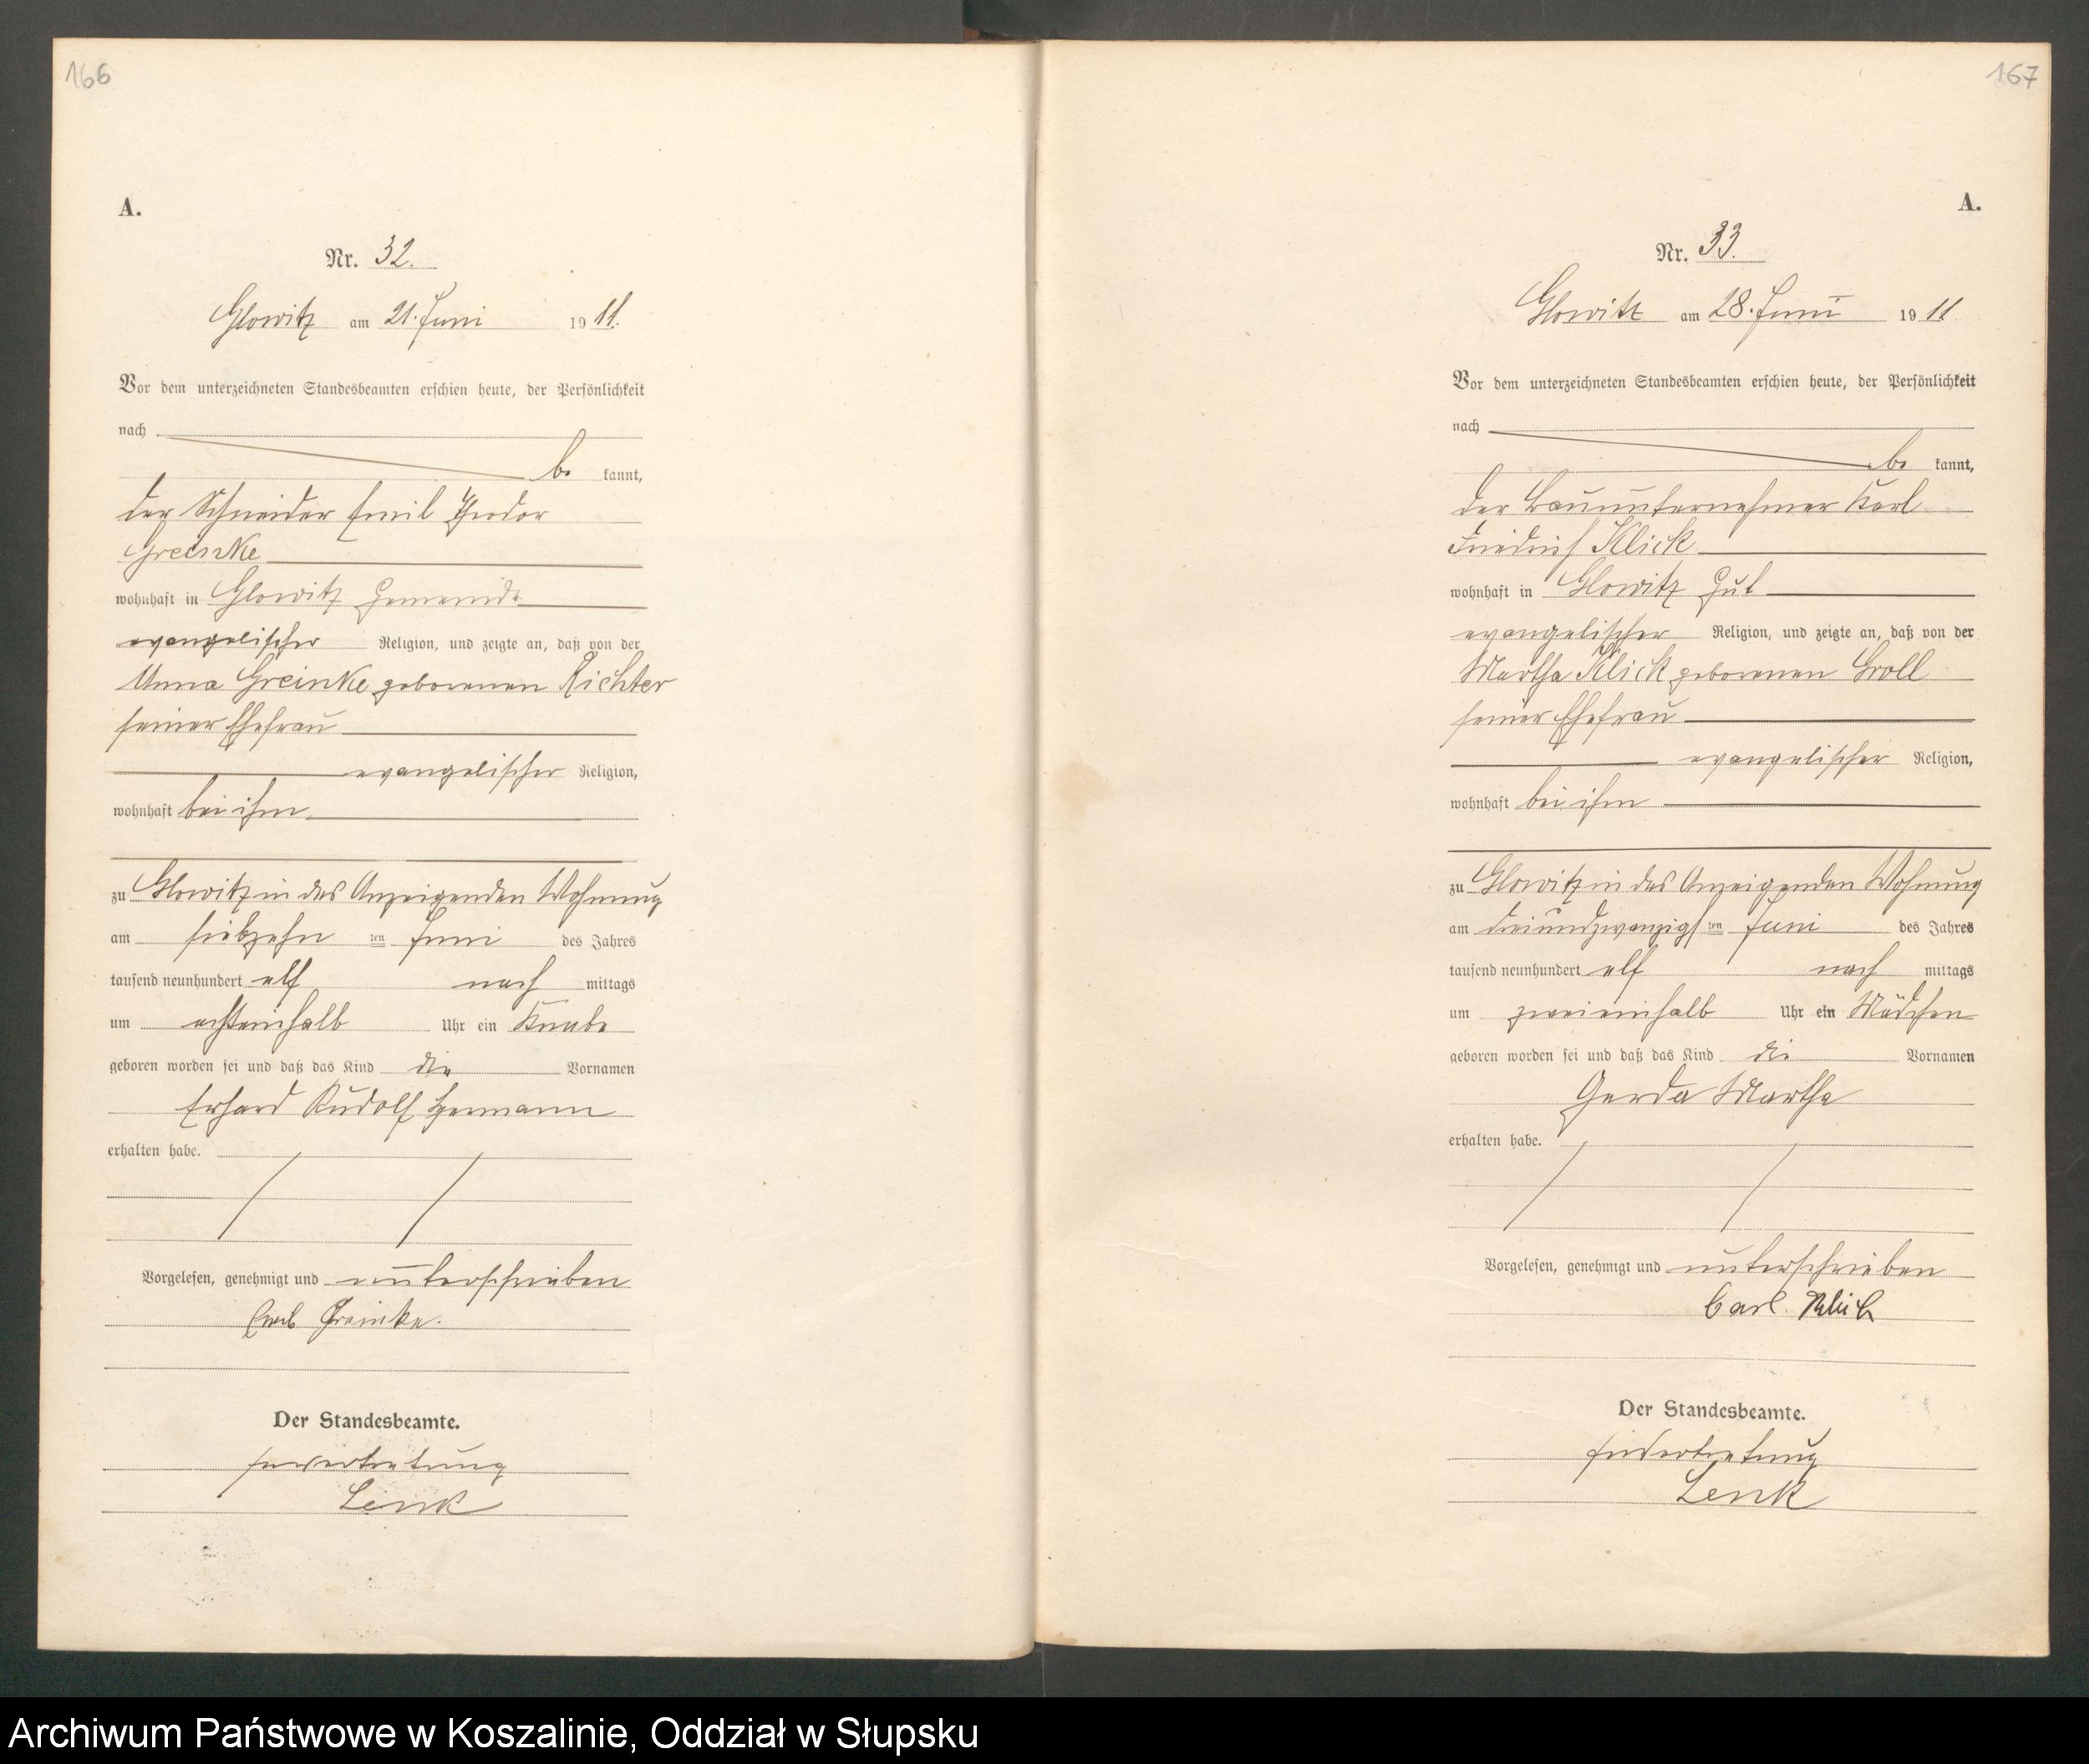 166
A.
Nr. 32.
Glowitz am 21. Juni 1911.
Vor dem unterzeichneten Standesbeamten erschien heute, der Persönlichkeit
nach
be kannt,
der Schneider Emil Theodor
Greinke
wohnhaft in Glowitz Gemeinde
evangelischer Religion, und zeigte an, daß von der
Anna Greinke geborenen Richter
seiner Ehefrau
evangelischer Religion,
wohnhaft bei ihm
zu Glowitz in des Anzeigenden Wohnung
am siebzehn ten Juni des Jahres
tausend neunhundert elf nach mittags
um achteinhalb Uhr ein Knabe
geboren worden sei und daß das Kind die Vornamen
Erhard Rudolf Hermann
erhalten habe.
Vorgelesen, genehmigt und unterschrieben
Emil Greinke.
Der Standesbeamte.
In Vertretung
Lenk
167
A.
Nr. 33.
Glowitz am 28. Juni 1911
Vor dem unterzeichneten Standesbeamten erschien heute, der Persönlichkeit
nach
be kannt,
der Bauunternehmer Karl
Friedrich Klick
wohnhaft in Glowitz Gut
evangelischer Religion, und zeigte an, daß von der
Martha Klick geborenen Groll
seiner Ehefrau
evangelischer Religion,
wohnhaft bei ihm
zu Glowitz in des Anzeigenden Wohnung
am dreiundzwanzigs ten Juni des Jahres
tausend neunhundert elf nach mittags
um zweieinhalb Uhr ein Mädchen
geboren worden sei und daß das Kind die Vornamen
Gerda Martha
erhalten habe.
Vorgelesen, genehmigt und unterschrieben
Carl Klick
Der Standesbeamte.
In Vertretung
Lenk
Archiwum Państwowe w Koszalinie, Oddział w Słupsku